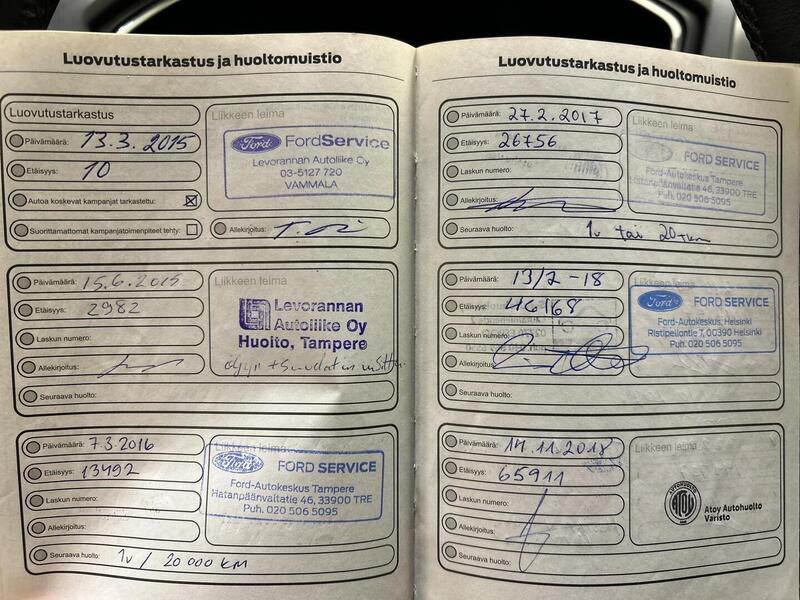 Luovutustarkastus ja huoltomuistio
Luovutustarkastus
Päivämäärä: 13.3.2015
Etäisyys: 10
Autoa koskevat kampanjat tarkastettu:
Suorittamattomat kampanjatoimenpiteet tehty:
Liikkeen leima
Ford FordService
Levorannan Autoliike Oy
03-5127 720
VAMMALA
Allekirjoitus:
Päivämäärä: 15.6.2015
Etäisyys: 2982
Laskun numero:
Allekirjoitus:
Seuraava huolto:
Liikkeen leima
Levorannan
Autoliike Oy
Huolto, Tampere
Päivämäärä: 7.3.2016
Etäisyys: 13492
Laskun numero:
Allekirjoitus:
Seuraava huolto: 1v / 20 000 KM
Liikkeen leima
Ford FORD SERVICE
Ford-Autokeskus Tampere
Hatanpäänvaltatie 46, 33900 TRE
Puh. 020 506 5095
Luovutustarkastus ja huoltomuistio
Päivämäärä: 27.2.2017
Etäisyys: 26756
Laskun numero:
Allekirjoitus:
Seuraava huolto: 1v tai 20tkm
Liikkeen leima
Ford FORD SERVICE
Ford-Autokeskus Tampere
Hatanpäänvaltatie 46, 33900 TRE
Puh. 020 506 5095
Päivämäärä: 13/2-18
Etäisyys: 46168
Laskun numero:
Allekirjoitus:
Seuraava huolto:
Liikkeen leima
Ford FORD SERVICE
Ford-Autokeskus, Helsinki
Ristipellontie 7, 00390 Helsinki
Puh. 020 506 5095
Päivämäärä: 14.11.2018
Etäisyys: 65911
Laskun numero:
Allekirjoitus:
Seuraava huolto:
Liikkeen leima
AUTOHUOLTO
ATOY
Atoy Autohuolto
Varisto